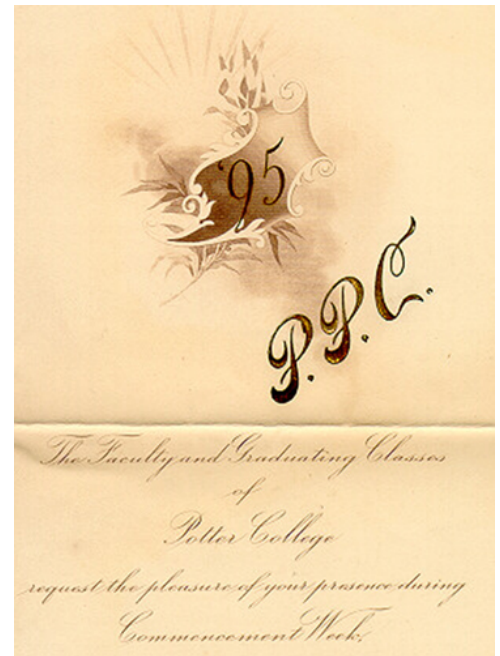 '95
P.P.C.
The Faculty and Graduating Classes
of
Potter College
request the pleasure of your presence during
Commencement Week,